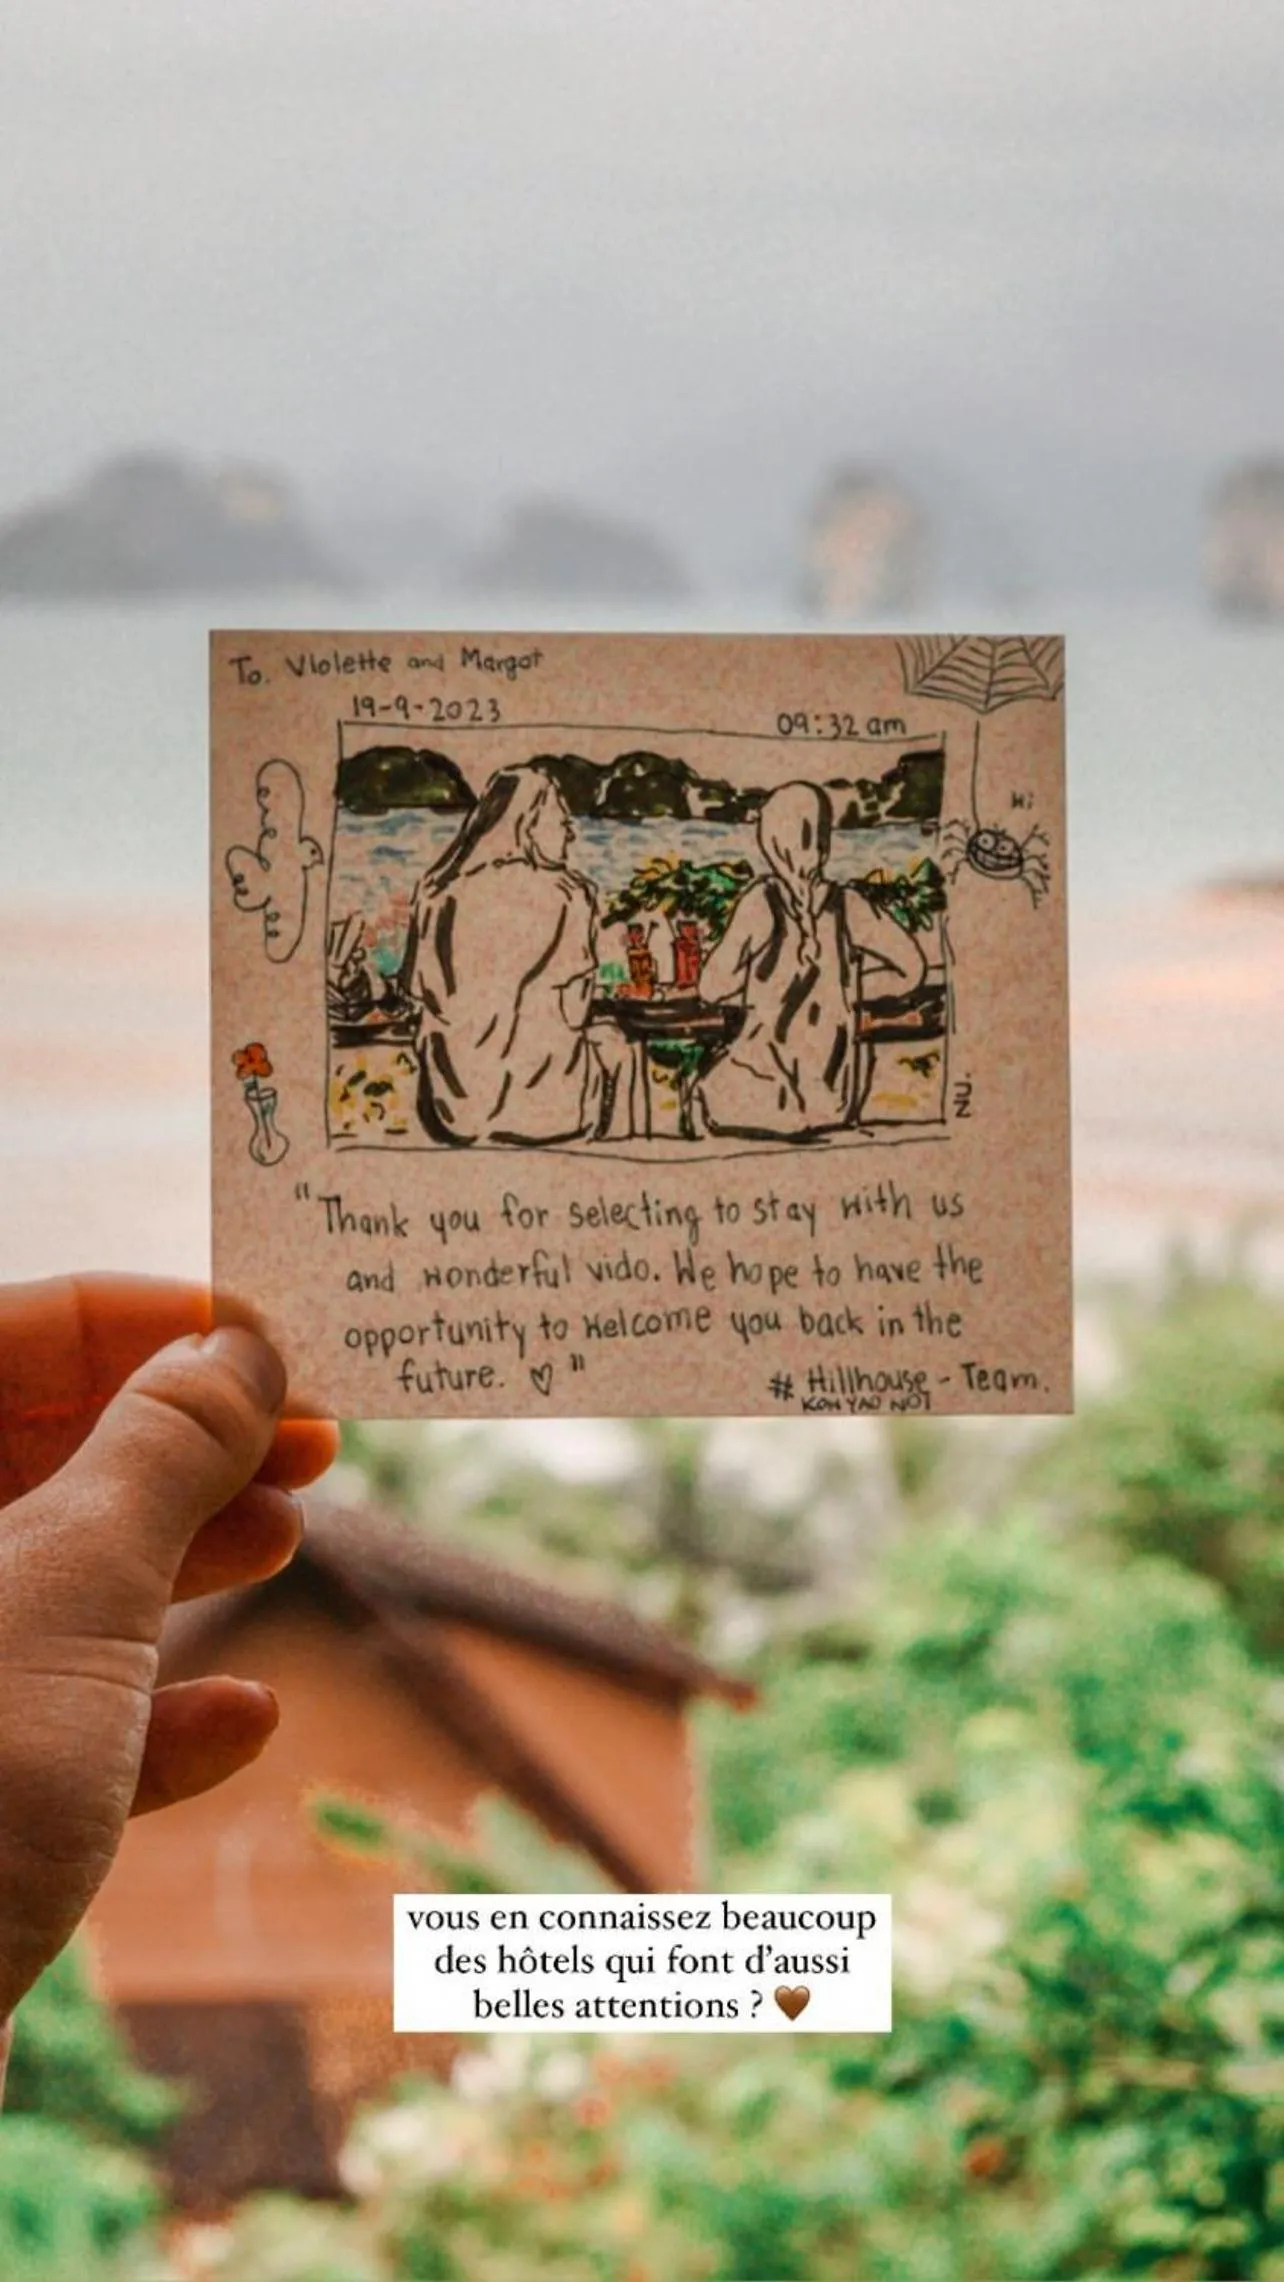 To. Violette and Margot
19-9-2023
09:32 am
Hi
"Thank you for selecting to stay with us
and wonderful vido. We hope to have the
opportunity to welcome you back in the
future. ♡"
# Hillhouse - Team.
KOH YAO NOI
vous en connaissez beaucoup
des hôtels qui font d'aussi
belles attentions ? 🤎